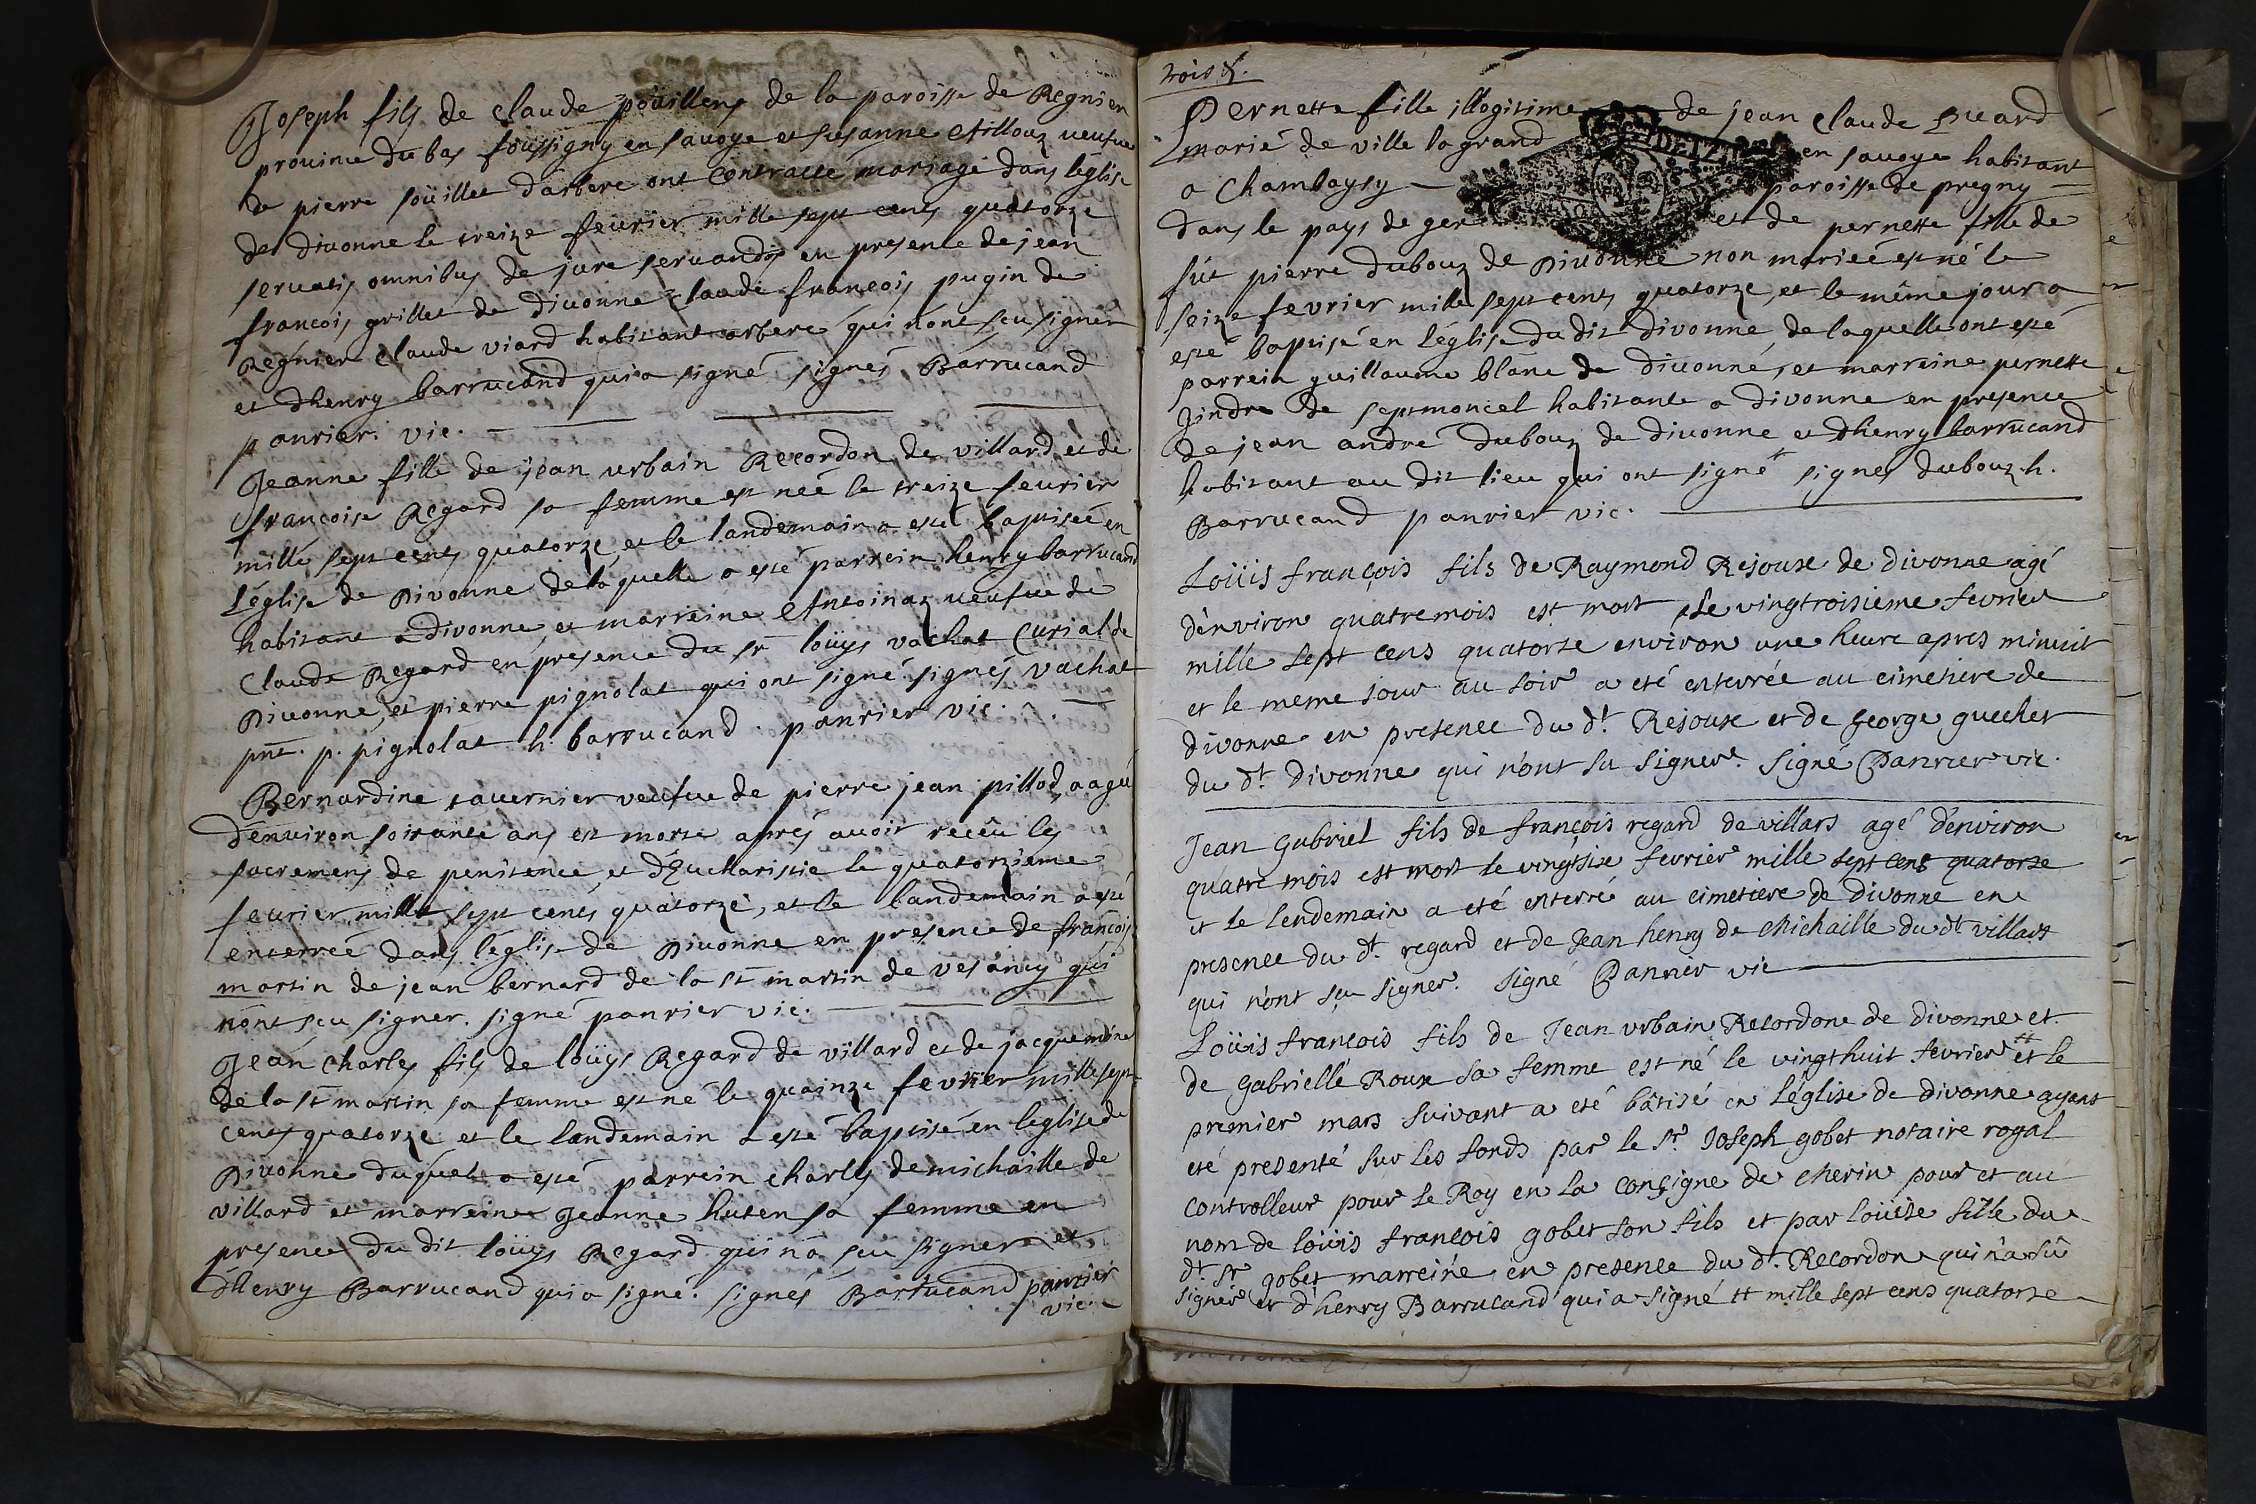 Joseph fils de claude poüillens de la paroisse de Regnier
province du bas foussigny en savoye et susanne veufve
de pierre soüillet d'arbere ont contracté mariage dans léglise
de divonne le treize feurier mille sept cents quatorze
servatis omnibus de jure servandis en presence de jean
francois grillet de divonne claude françois pugin de
Regnier claude viard habitant arbere qui nont sçu signer
et dhenry barrucand qui a signé signés Barrucand
panrier. vic.
Jeanne fille de jean urbain Recordon de villard et de
françoise Regard sa femme est neé le treize feurier
mille sept cents quatorze, et le landemain a esté baptiseé en
Léglise de Divonne de laquelle a esté parrein henry barrucand
habitant a divonne, et marreine Antoinaz veufue de
Claude Regard en presence du sr loüys vachat Curial de
Divonne, et pierre pignolat qui ont signé signés vachat
pnt. p. pignolat h. barrucand. panrier vic.
Bernardine tavernier veufue de pierre jean pillod, aageé
denviron soixante ans est morte aprés avoir reçêu les
sacremens de penitence et d'Eucharistie le quatorzieme
feurier mille sept cents quatorze, et le landemain a esté
enterreé dans léglise de Divonne en presence de françois
martin de jean bernard de la st martin de vesancy qui
nont sçu signer. signé panrier vic.
Jean Charles fils de loüys Regard de villard et de jacquemine
de la st martin sa femme est né le quainze fevrier mille sept
cents quatorze et le landemain a esté baptisé en léglise de
Divonne duquel a esté parrein charles demichaille de
villard et marreine Jeanne huten sa femme en
presence du dit loüys Regard qui n'a sçu signer et
dhenry Barrucand qui a signé. signés Barrucand panrier
vic.
trois
Pernette fille illegitime de jean claude Buard
marié de ville la grand en savoye habitant
a Chambaysy paroisse de pregny
dans le pays de gex et de pernette fille de
fût pierre dubouz de Divonne non marieé est né le
seize fevrier mille sept cents quatorze, et le même jour a
esté baptisé en Léglise du dit divonne, de laquelle ont esté
parrein guillaume blanc de divonne, et marreine pernette
Jindre de septmoncel habitante a divonne en presence
de jean andré dubouz de divonne et dhenry barrucand
habitant au dit lieu qui ont signé signes dubouz. h.
Barrucand panrier vic.
Loüis françois fils de Raymond Rejoux de divonne agé
d'environ quatre mois est mort le vingtroisieme fevrier
mille sept cens quatorse environ une heure apres minuit
et le meme jour au soir a eté enterrée au cimetiere de
divonne en presence du dt. Rejoux et de George guechet
du dt. divonne qui n'ont su signer. Signé Panrier vic.
Jean Gabriel fils de françois regard de villars agé d'environ
quatre mois est mort le vingtsix fevrier mille sept cens quatorse
et le lendemain a eté enterré au cimetiere de divonne en
presence du dt. regard et de Jean henry de Michaille du dt villars
qui n'ont sçu signer. Signé Panrier vic
Loüis françois fils de Jean urbain Recordon de divonne et
de gabrielle Roux sa femme est né le vingthuit fevrier # et le
premier mars suivant a eté bâtisé en léglise de divonne ayant
eté presenté sur les fonds par le sr. Joseph gobet notaire royal
controlleur pour le Roy en la consigne de cherin pour et au
nom de loüis francois gobet son fils et par loüise fille du
dt. sr gobet marreine en presence du dt. Recordon qui n'a sû
signer et d'henry Barrucand qui a signé # mille sept cens quatorse